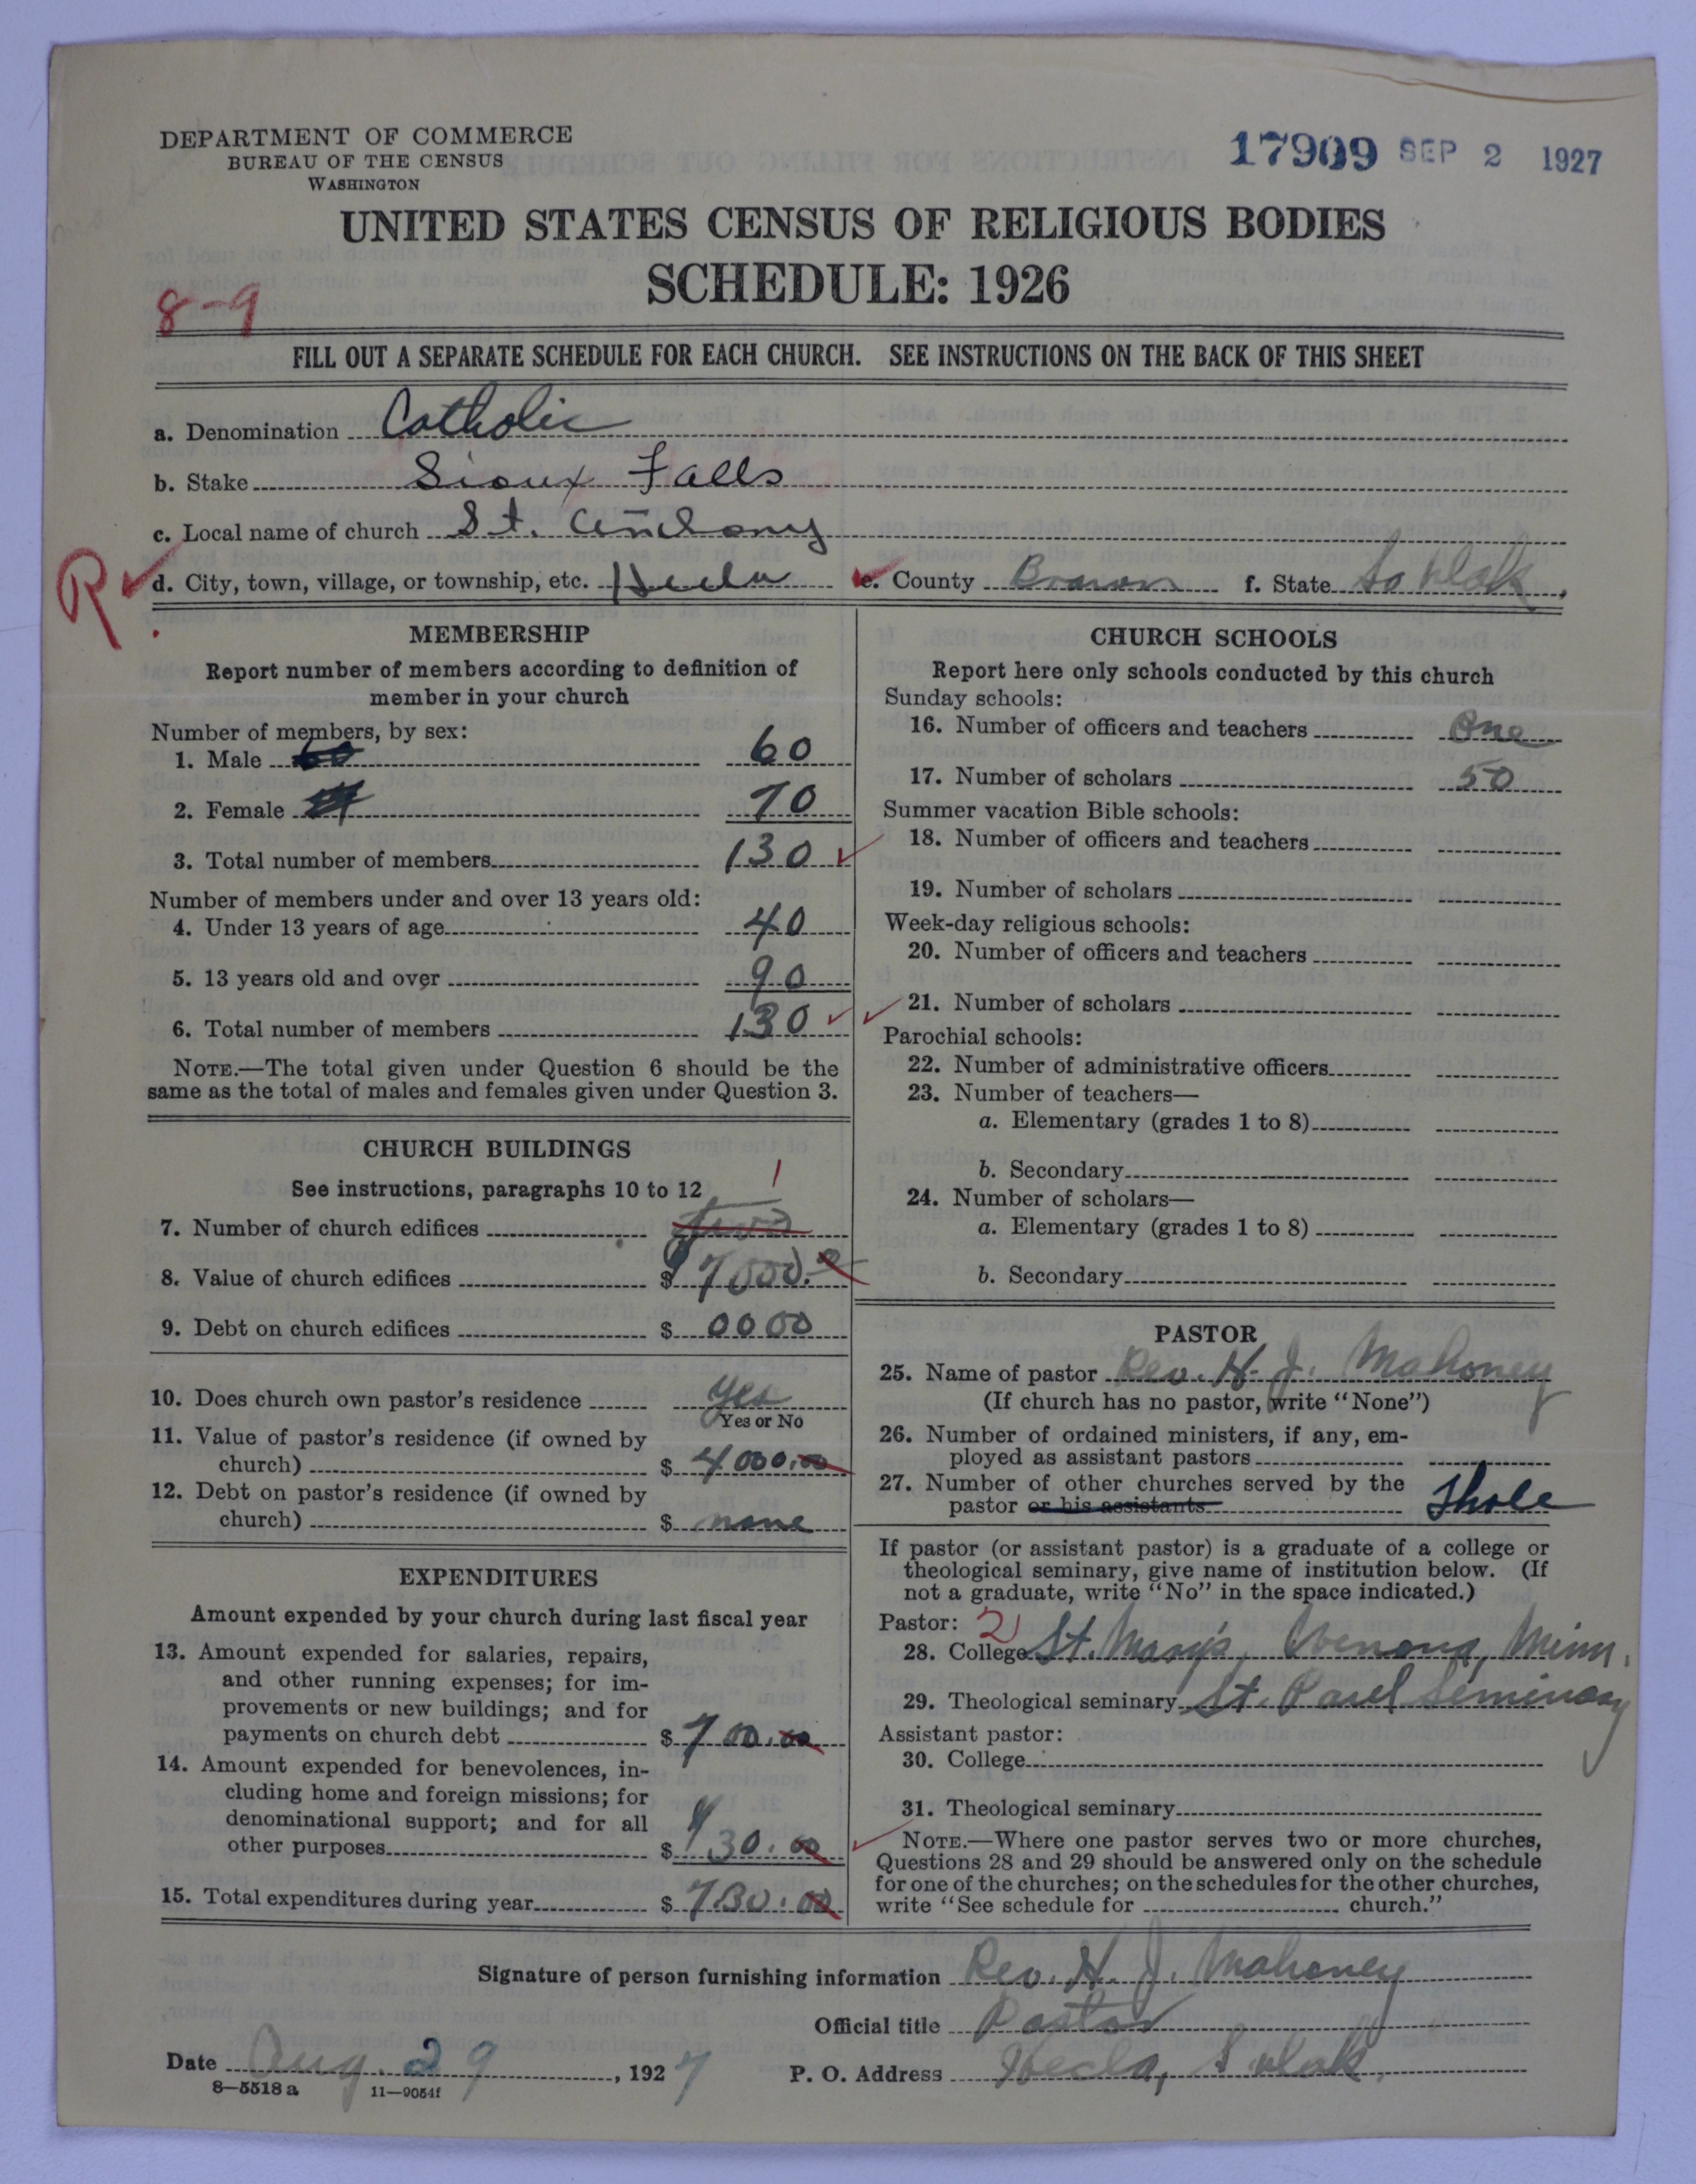 DEPARTMENT OF COMMERCE
BUREAU OF THE CENSUS
WASHINGTON
17909 SEP 2 1927
UNITED STATES CENSUS OF RELIGIOUS BODIES
SCHEDULE: 1926
8-9
FILL OUT A SEPARATE SCHEDULE FOR EACH CHURCH. SEE INSTRUCTIONS ON THE BACK OF THIS SHEET
a. Denomination Catholic
b. Stake Sioux Falls
c. Local name of church St. Anthony
R
d. City, town, village, or township, etc. Hecla e. County Brown f. State So Dak.
MEMBERSHIP
Report number of members according to definition of
member in your church
Number of members, by sex:
1. Male 60 60
2. Female 70
3. Total number of members 130
Number of members under and over 13 years old:
4. Under 13 years of age 40
5. 13 years old and over 90
6. Total number of members 130
NOTE.—The total given under Question 6 should be the
same as the total of males and females given under Question 3.
CHURCH BUILDINGS
See instructions, paragraphs 10 to 12
1
7. Number of church edifices two
8. Value of church edifices $ 7000.00
9. Debt on church edifices $ 0000
10. Does church own pastor's residence yes
Yes or No
11. Value of pastor's residence (if owned by
church) $ 4000.00
12. Debt on pastor's residence (if owned by
church) $ none
EXPENDITURES
Amount expended by your church during last fiscal year
13. Amount expended for salaries, repairs,
and other running expenses; for im-
provements or new buildings; and for
payments on church debt $ 700.00
14. Amount expended for benevolences, in-
cluding home and foreign missions; for
denominational support; and for all
other purposes $ 30.00
15. Total expenditures during year $ 730.00
CHURCH SCHOOLS
Report here only schools conducted by this church
Sunday schools:
16. Number of officers and teachers One
17. Number of scholars 50
Summer vacation Bible schools:
18. Number of officers and teachers
19. Number of scholars
Week-day religious schools:
20. Number of officers and teachers
21. Number of scholars
Parochial schools:
22. Number of administrative officers
23. Number of teachers—
a. Elementary (grades 1 to 8)
b. Secondary
24. Number of scholars—
a. Elementary (grades 1 to 8)
b. Secondary
PASTOR
25. Name of pastor Rev. H. J. Mahoney
(If church has no pastor, write "None")
26. Number of ordained ministers, if any, em-
ployed as assistant pastors
27. Number of other churches served by the
pastor or his assistants
If pastor (or assistant pastor) is a graduate of a college or
theological seminary, give name of institution below. (If
not a graduate, write "No" in the space indicated.)
Pastor: 2
28. College St. Mary's, Wenona, Minn.
29. Theological seminary St. Paul Seminary
Assistant pastor:
30. College
31. Theological seminary
NOTE.—Where one pastor serves two or more churches,
Questions 28 and 29 should be answered only on the schedule
for one of the churches; on the schedules for the other churches,
write "See schedule for church."
Signature of person furnishing information Rev. H. J. Mahoney
Official title Pastor
Date Aug. 29, 1927 P. O. Address Hecla, S. Dak.
8—5518 a 11—9054f